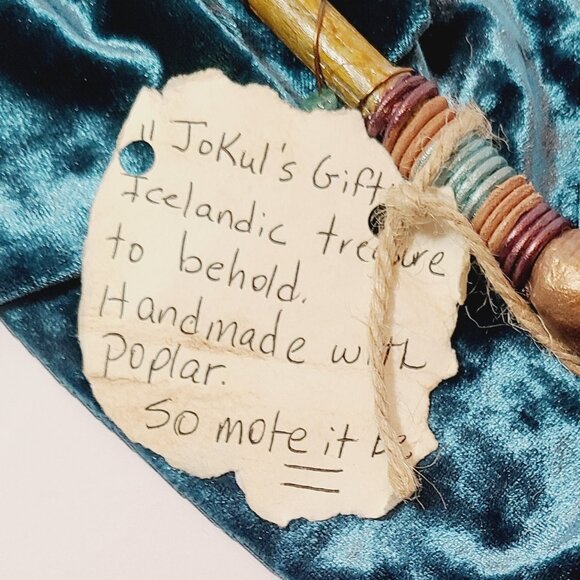 " JoKul's Gift
Icelandic treasure
to behold.
Handmade with
Poplar.
So mote it be